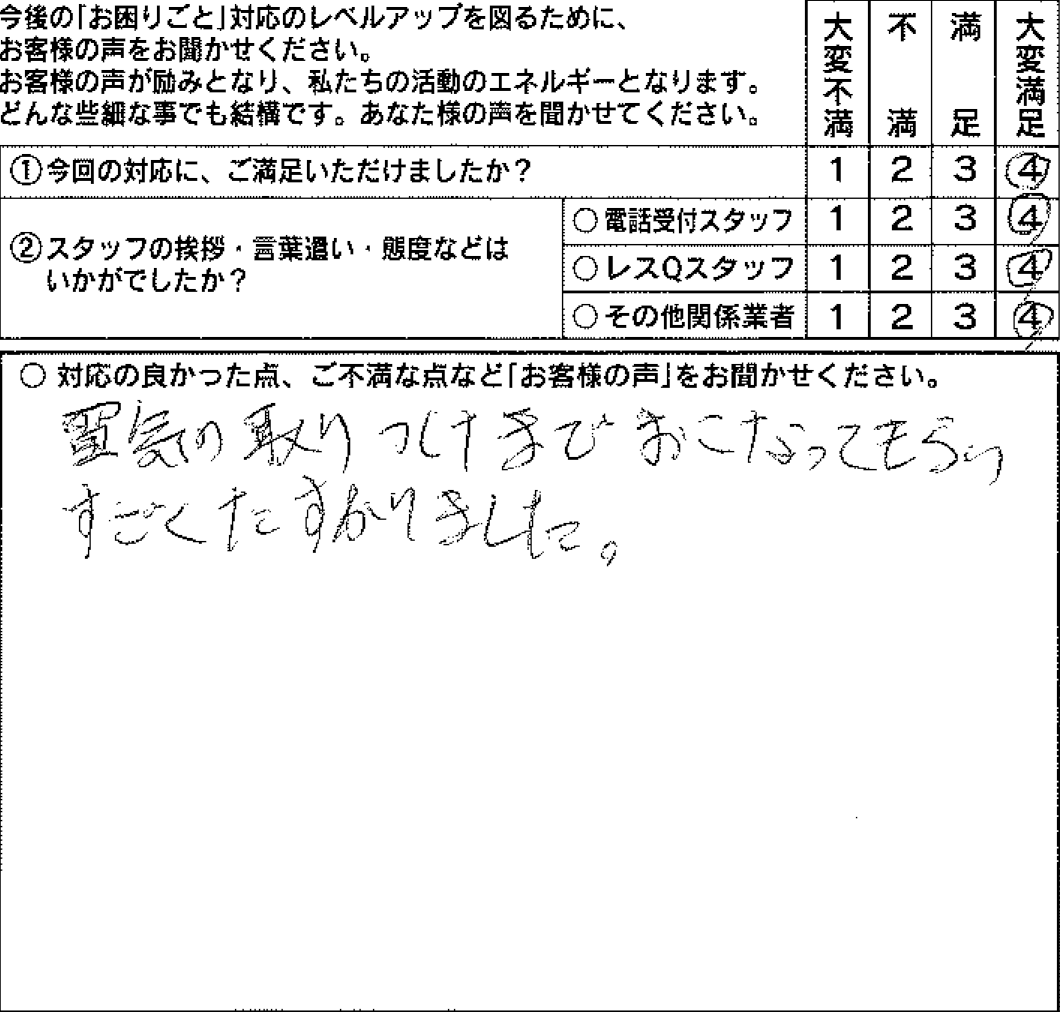 今後の「お困りごと」対応のレベルアップを図るために、
お客様の声をお聞かせください。
お客様の声が励みとなり、私たちの活動のエネルギーとなります。
どんな些細な事でも結構です。あなた様の声を聞かせてください。
大変不満 不満 満足 大変満足
①今回の対応に、ご満足いただけましたか？ 1 2 3 4
②スタッフの挨拶・言葉遣い・態度などは
いかがでしたか？
○電話受付スタッフ 1 2 3 4
○レスQスタッフ 1 2 3 4
○その他関係業者 1 2 3 4
○ 対応の良かった点、ご不満な点など「お客様の声」をお聞かせください。
電気の取りつけまでおこなってもらい
すごくたすかりました。